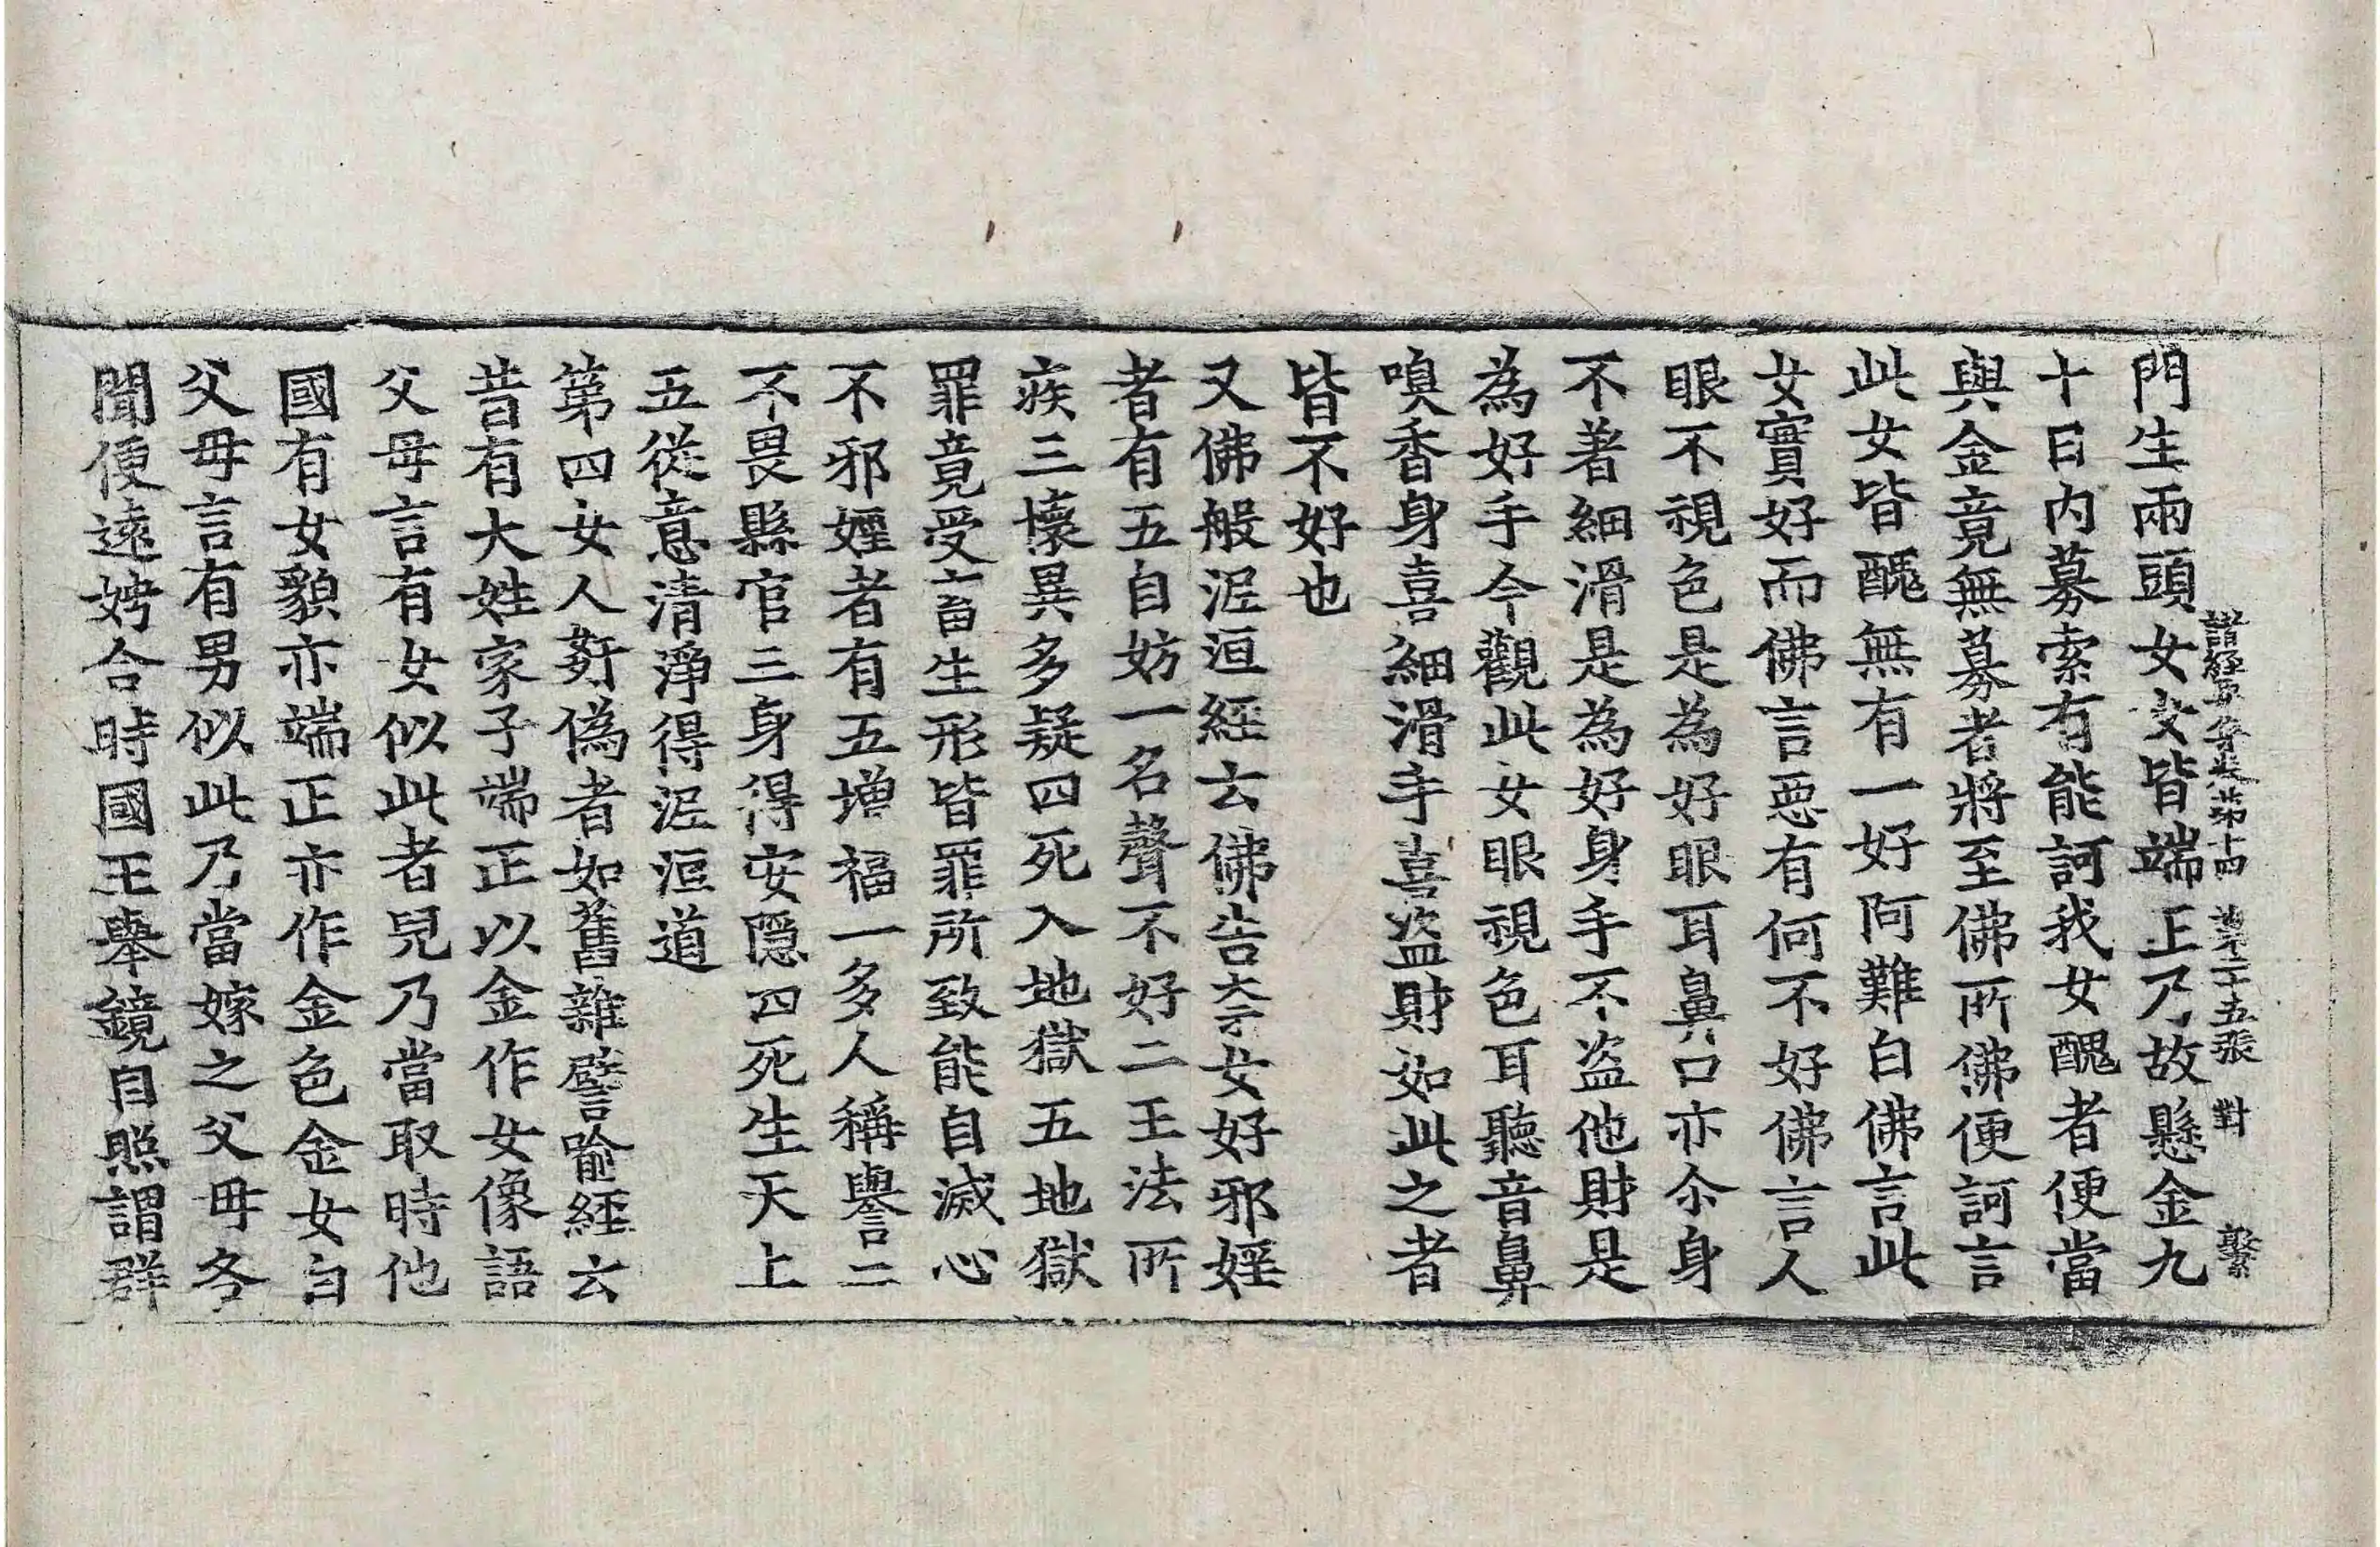 門生兩頭女女皆端正乃故懸金九
十日内募索有能訶我女醜者便當
與金竟無募者將至佛所佛便訶言
此女皆醜無有一好阿難白佛言此
女實好而佛言惡有何不好佛言人
眼不視色是為好眼耳鼻口亦尒身
不著細滑是為好身手不盗他財是
為好手今觀此女眼視色耳聽音鼻
嗅香身喜細滑手喜盗財如此之者
皆不好也
又佛般泥洹經云佛告柰女好邪婬
者有五自妨一名聲不好二王法所
疾三懷異多疑四死入地獄五地獄
罪竟受畜生形皆罪所致能自滅心
不邪婬者有五增福一多人稱譽二
不畏縣官三身得安隱四死生天上
五從意清淨得泥洹道
第四女人姧偽者如舊雜譬喻經云
昔有大姓家子端正以金作女像語
父母言有女似此者兒乃當取時他
國有女貌亦端正亦作金色金女白
父母言有男似此乃當嫁之父母各
聞便遠娉合時國王舉鏡自照謂群